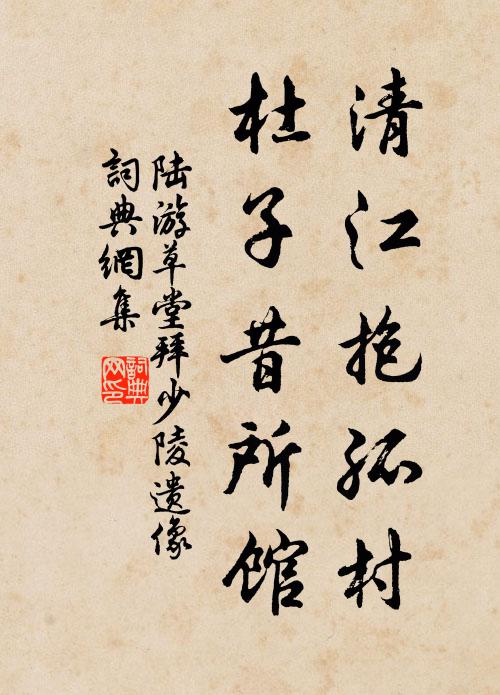 清江抱孤村
杜子昔所館
陆游草堂拜少陵遺像
詞典網集
詞典网印